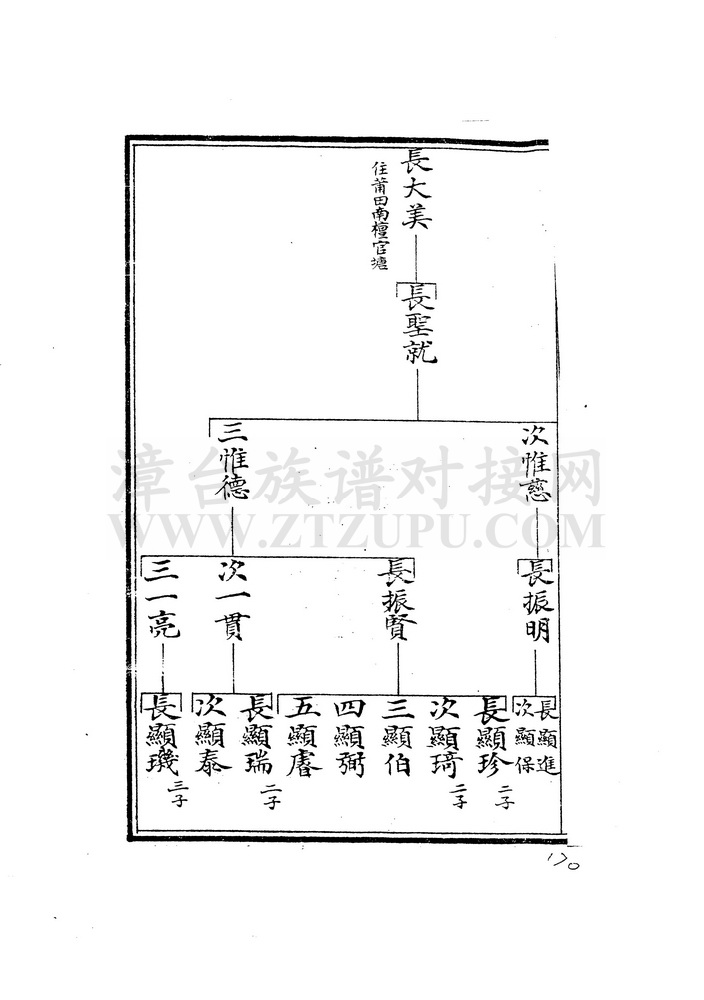 長大美
住莆田南檀官塘
長聖就
次惟慈
三惟德
長振明
長振賢
次一貫
三一亮
長顯進
次顯保
長顯珍
二子
次顯琦
二子
三顯伯
四顯弼
五顯睿
長顯瑞
二子
次顯泰
長顯璣
三子
漳台族谱对接网
WWW.ZTZUPU.COM
170